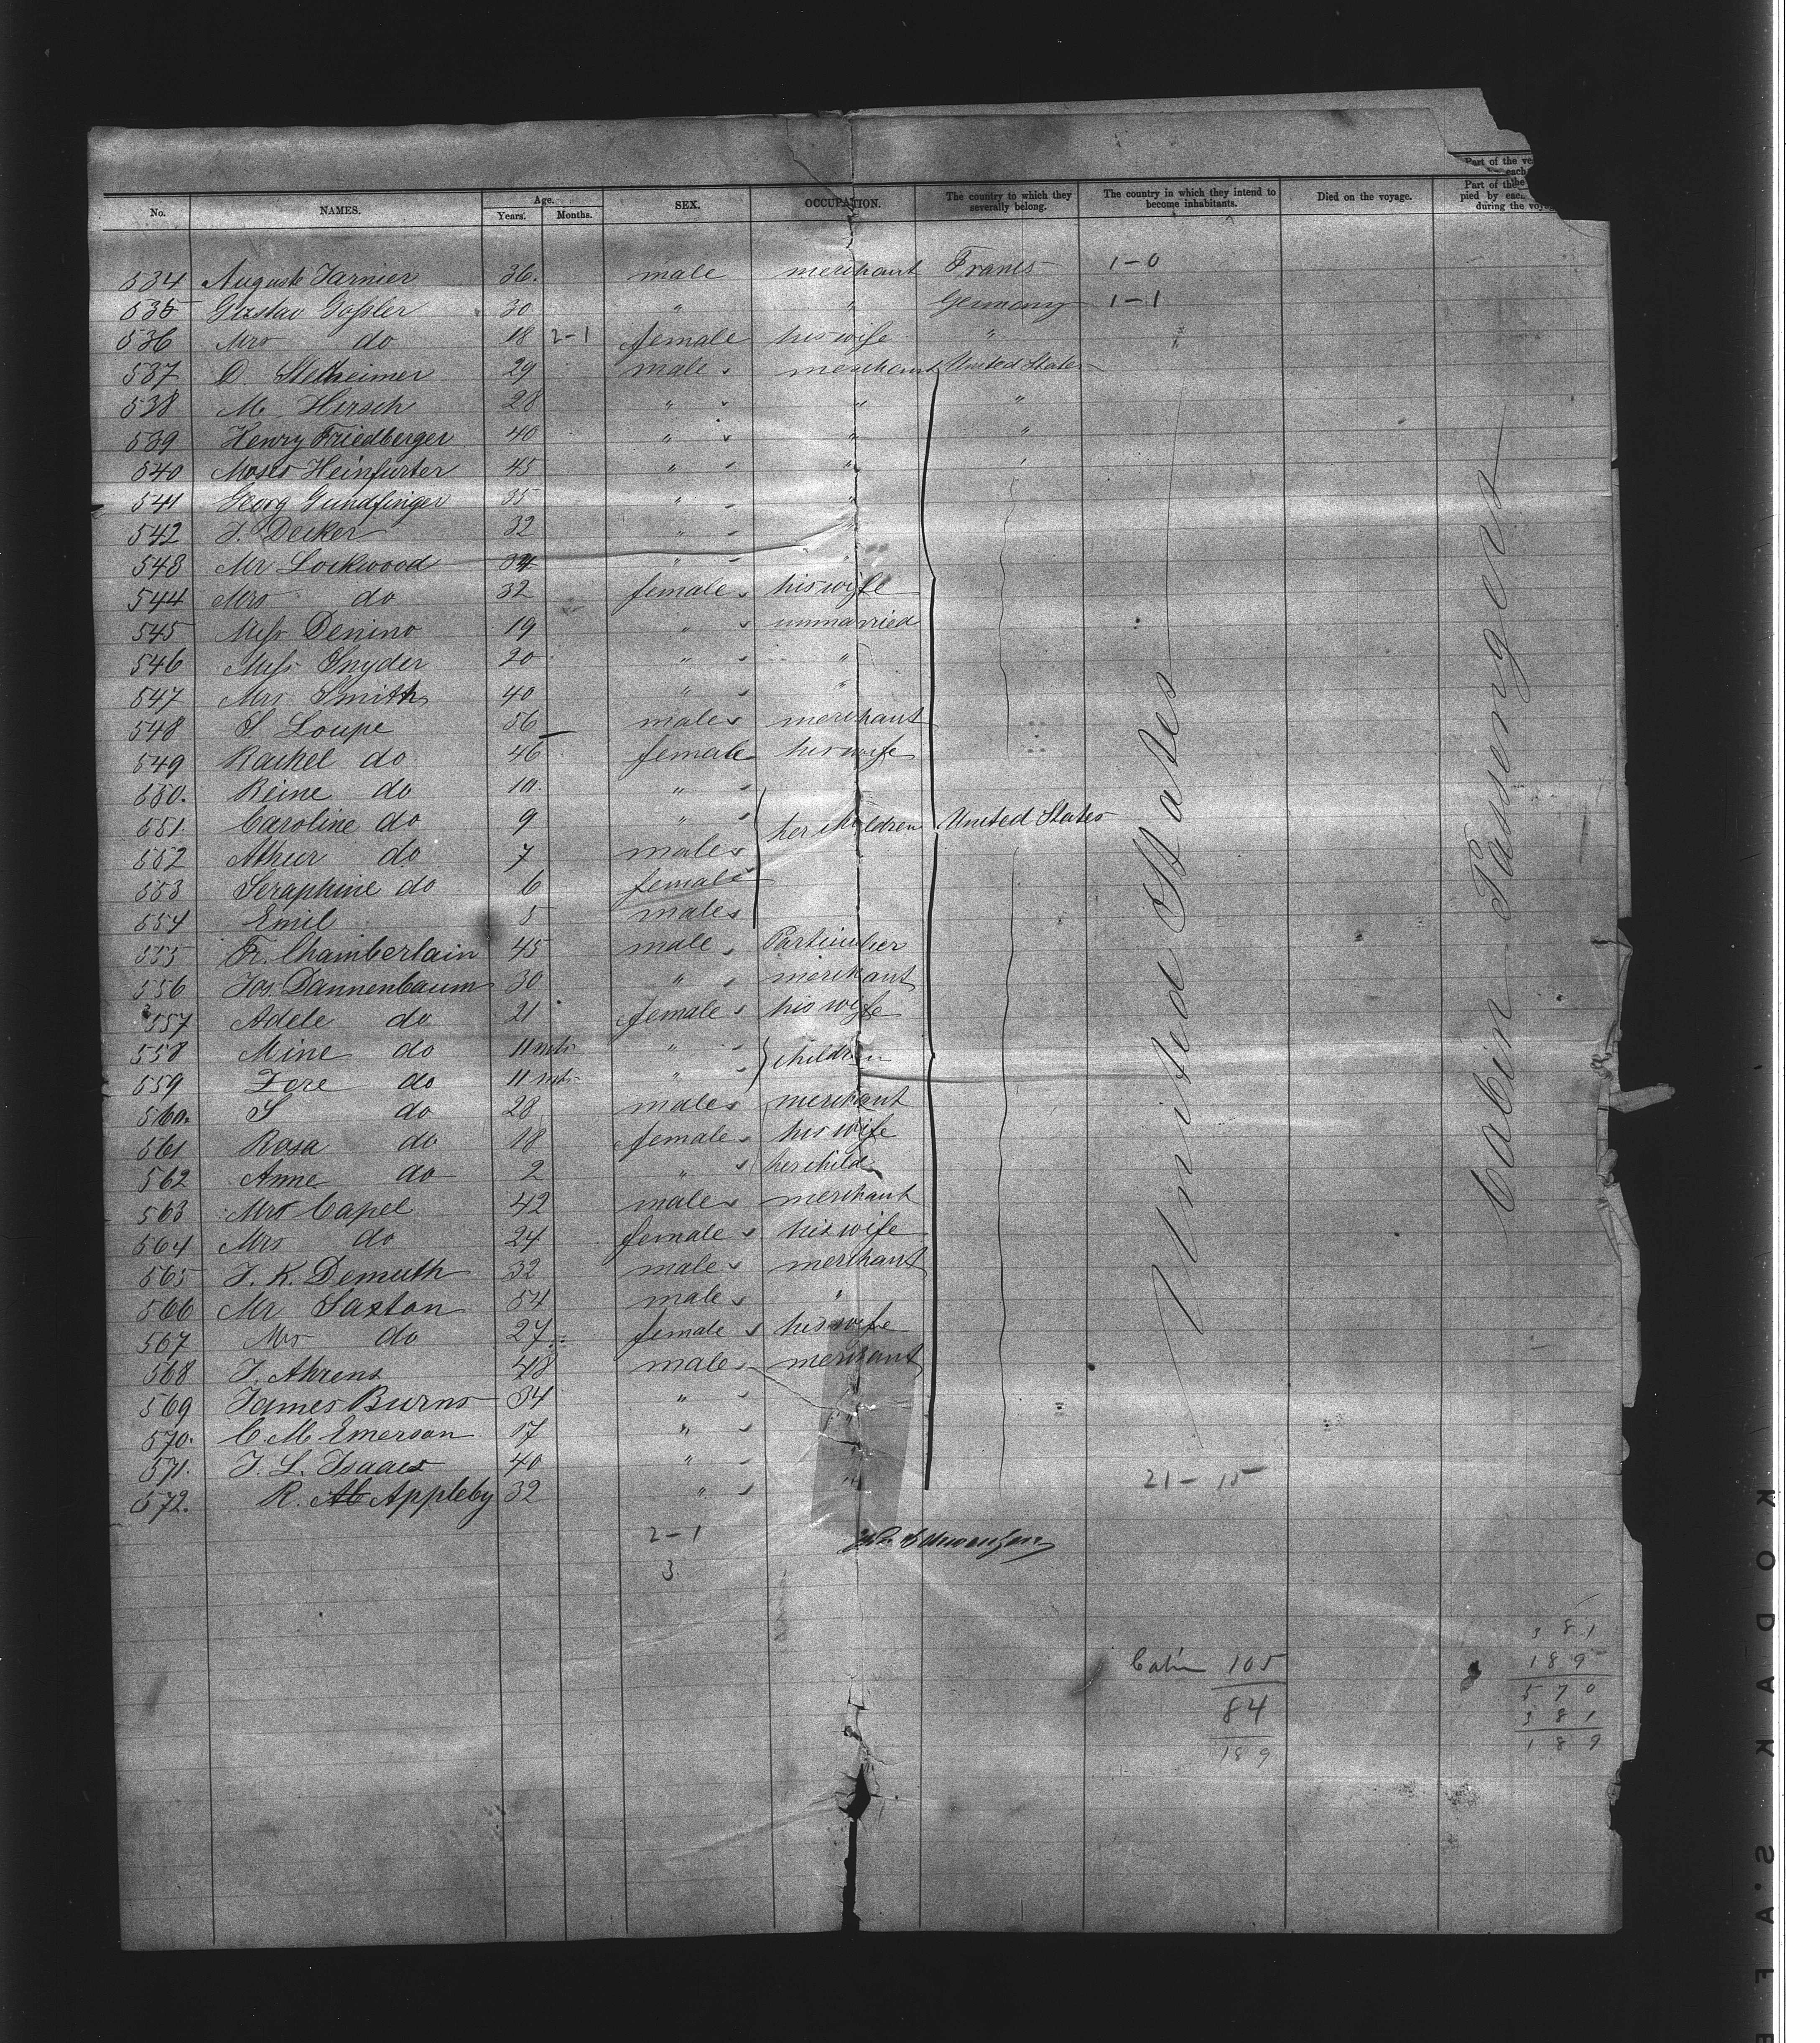 Part of the ve
each
No. NAMES. Age. Years. Months. SEX. OCCUPATION. The country to which they severally belong. The country in which they intend to become inhabitants. Died on the voyage. Part of the pied by each during the voy
534 Auguste Tarnier 36. male merchant France 1-0
535 Gustav Goßler 30 " " Germany 1-1
536 Mrs do 18 2-1 female his wife " "
537 D. Stetheimer 29 male merchant United States
538 M. Hirsch 28 " " "
539 Henry Friedberger 40 " " "
540 Moses Heinfurter 45 " " "
541 Georg Gundfinger 35 " "
542 J. Decker 32 " "
543 Mr Lockwood 34 " "
544 Mrs do 32 female his wife
545 Miss Denino 19 " unmarried
546 Miss Snyder 20 " "
547 Mrs Smith 40 " "
548 S Loupe 56 male merchant
549 Rachel do 46 female his wife
550. Reine do 10. "
551. Caroline do 9 " her children United States
552 Athur do 7 male
553 Seraphine do 6 female
554 Emil 5 male
555 Fr. Chamberlain 45 male Particulier
556 Jos. Dannenbaum 30 " merchant
557 Adele do 21 female his wife
558 Mine do 11 mts " children
559 Zere do 11 mts "
560. S do 28 male merchant
561 Rosa do 18 female his wife
562 Anne do 2 " her child
563 Mrs Capel 42 male merchant
564 Mrs do 24 female his wife
565 J. K. Demuth 32 male merchant
566 Mr Saxton 54 male "
567 Mrs do 27 female his wife
568 J. Ahrens 48 male merchant
569 James Burns 34 " "
570. C M Emerson 17 " "
571. J. L. Isaacs 40 " "
572. R. Ab Appleby 32 " "
United States
Cabin Passengers
21 - 15
2-1
3
Cabin 105
84
189
381
189
570
381
189
KODAK S.A.F.E